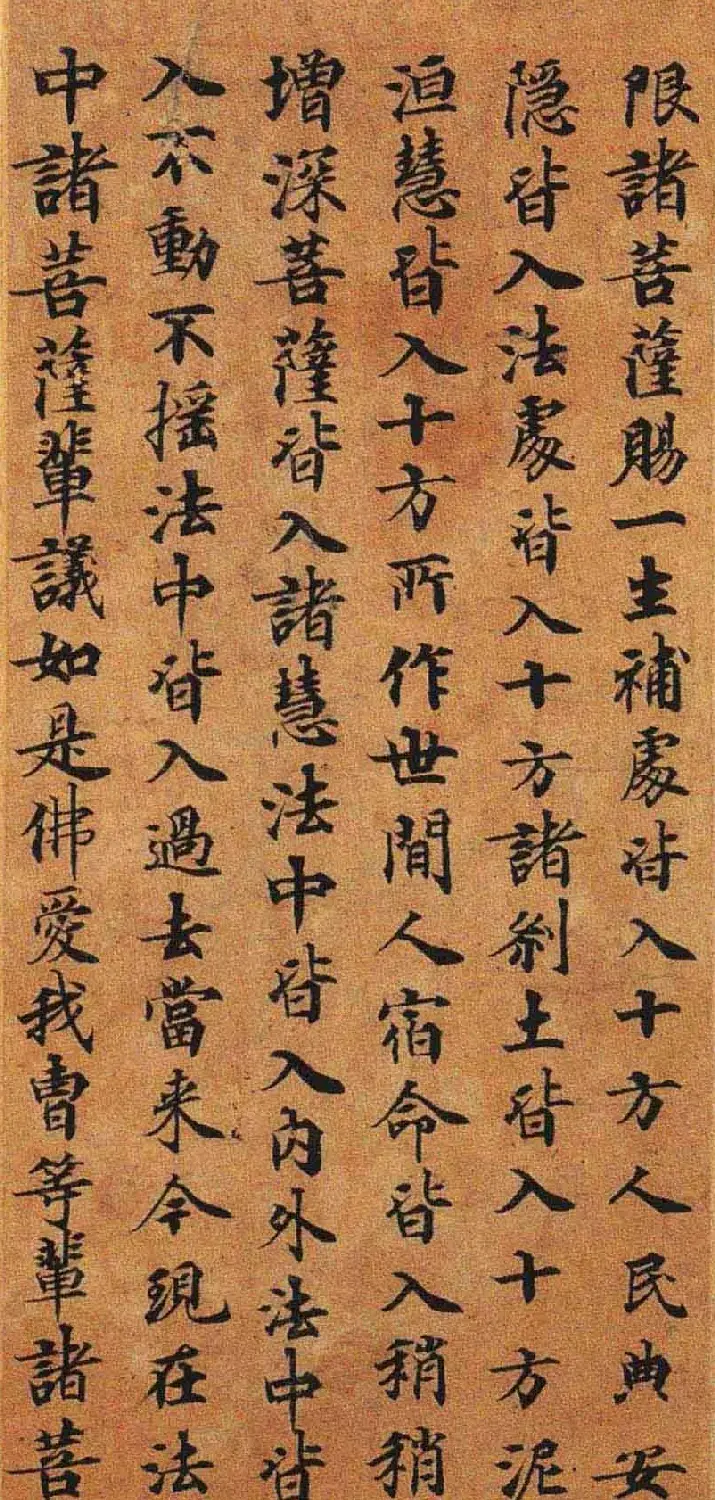 限諸菩薩賜一生補處皆入十方人民典安
隱皆入法處皆入十方諸刹土皆入十方泥
洹慧皆入十方所作世間人宿命皆入稍稍
增深菩薩皆入諸慧法中皆入內外法中皆
入不動不搖法中皆入過去當来今現在法
中諸菩薩輩議如是佛愛我曹等輩諸菩